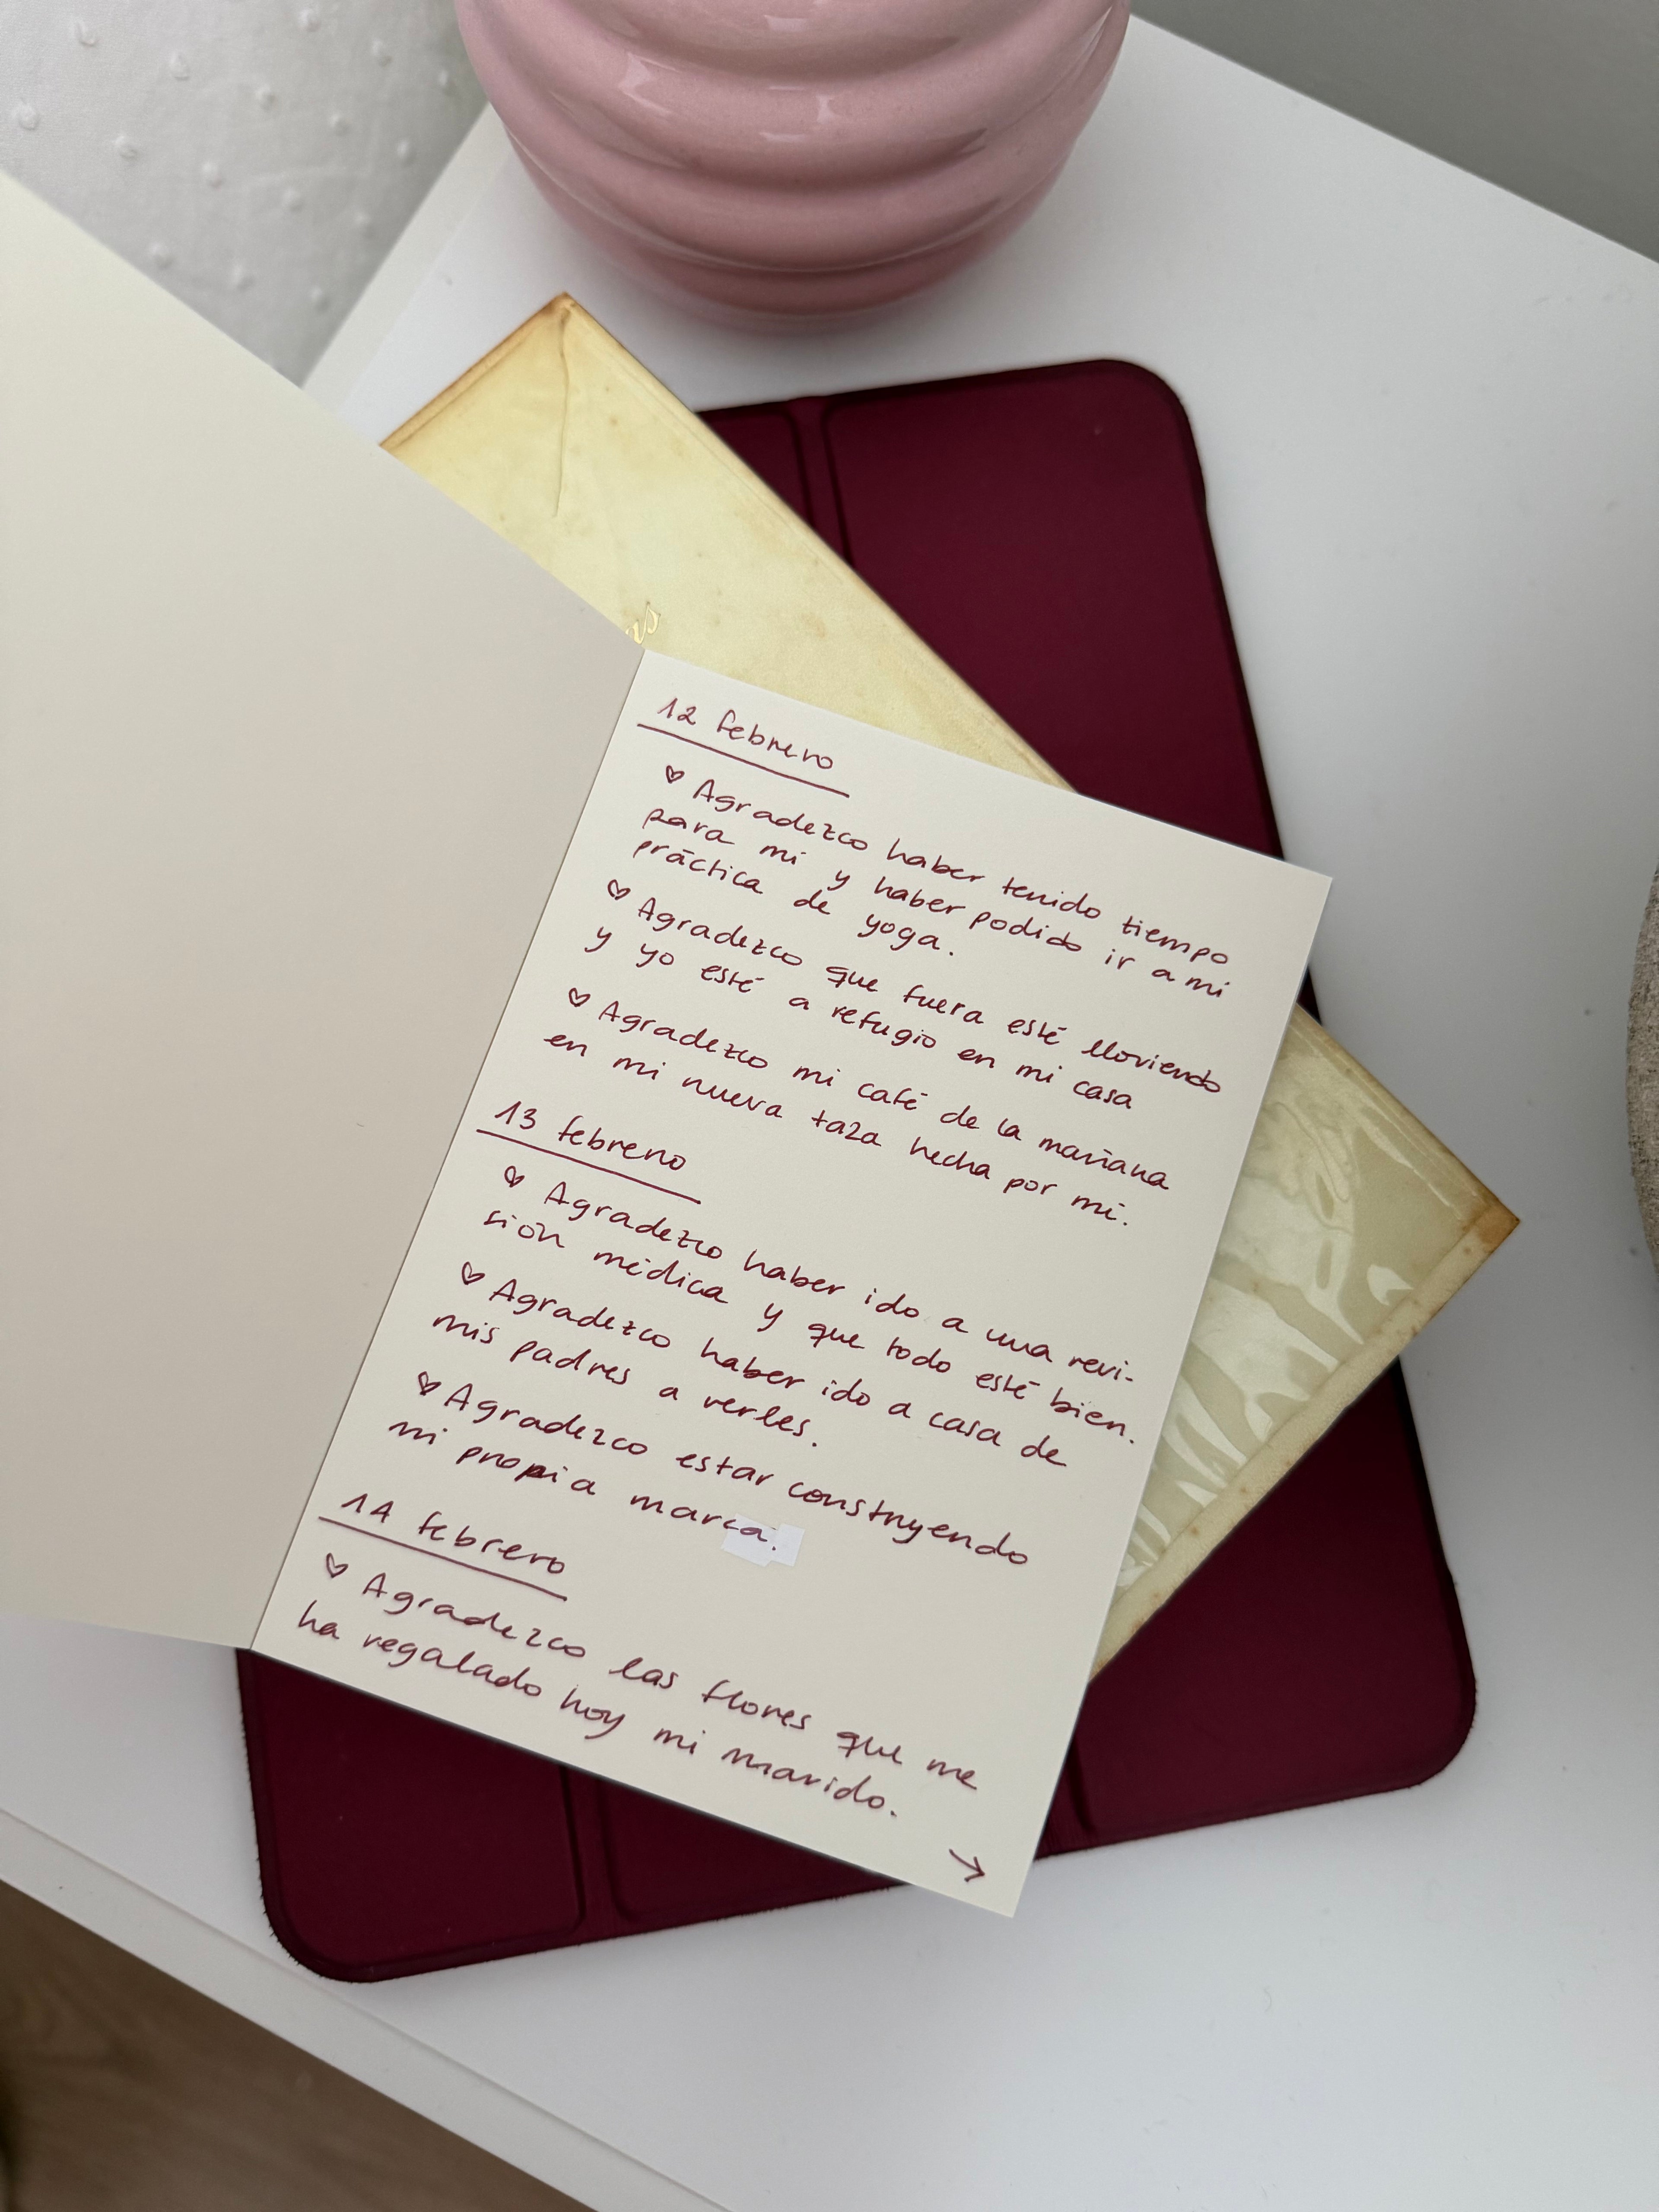 us
12 febrero
♡ Agradezco haber tenido tiempo
para mí y haber podido ir a mi
práctica de yoga.
♡ Agradezco que fuera esté lloviendo
y yo esté a refugio en mi casa
♡ Agradezco mi café de la mañana
en mi nueva taza hecha por mí.
13 febrero
♡ Agradezco haber ido a una revi-
sión médica y que todo esté bien.
♡ Agradezco haber ido a casa de
mis padres a verles.
♡ Agradezco estar construyendo
mi propia marca.
14 febrero
♡ Agradezco las flores que me
ha regalado hoy mi marido.
→